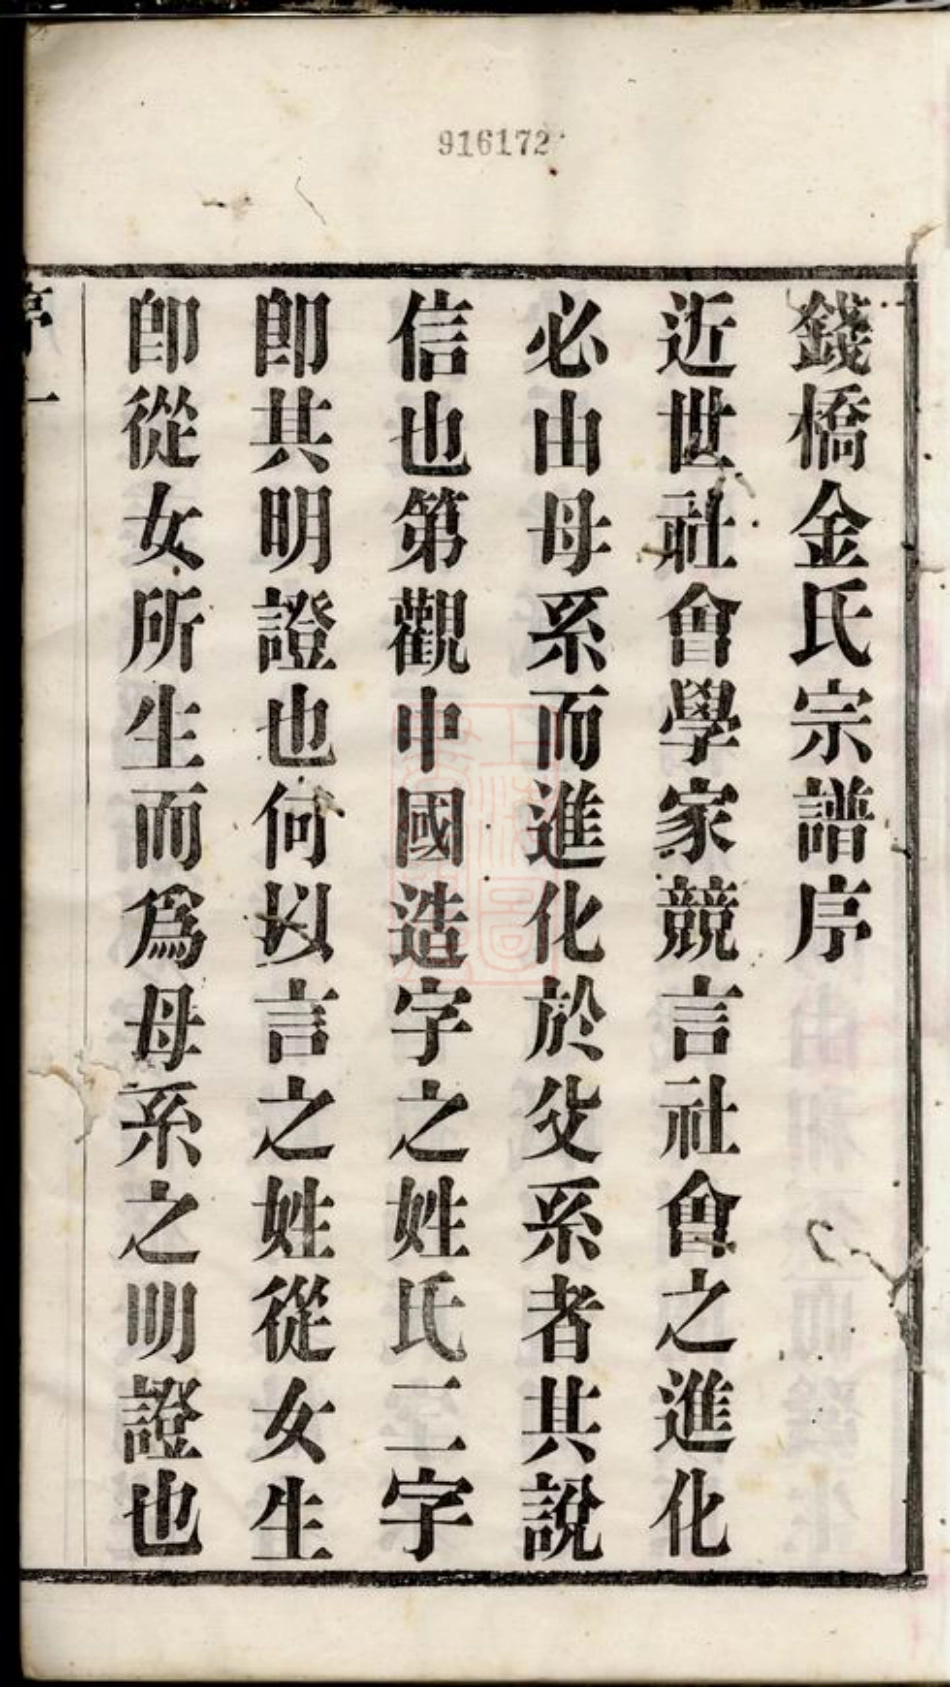 916172
錢橋金氏宗譜序
近世社會學家競言社會之進化
必由母系而進化於父系者其說
信也第觀中國造字之姓氏二字
卽其明證也何以言之姓從女生
卽從女所生而爲母系之明證也
序 一